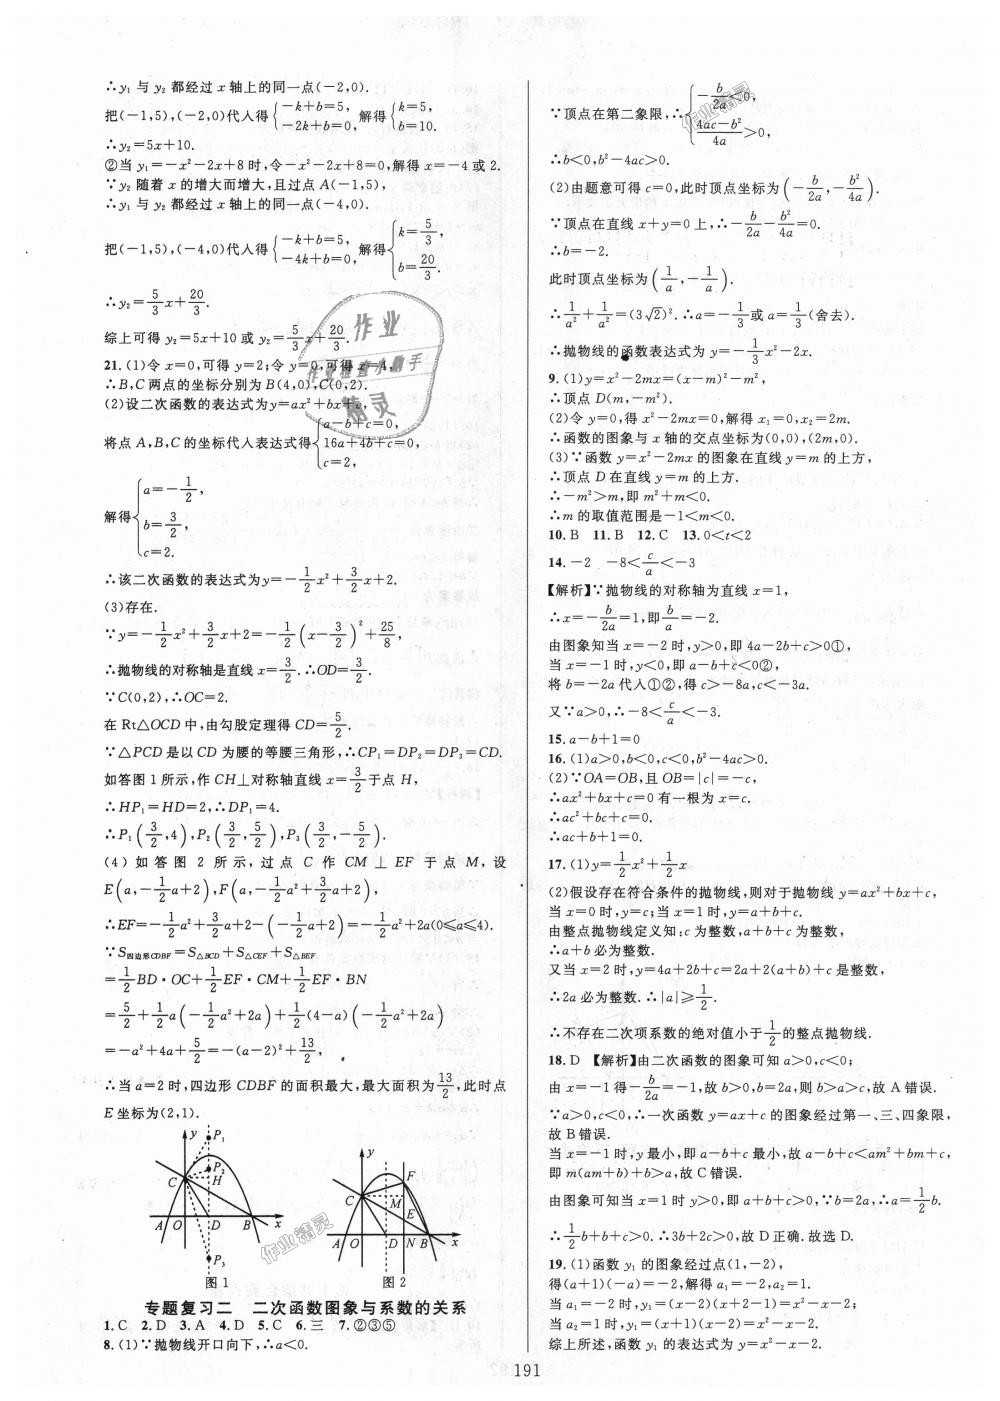 ∴y₁ 与 y₂ 都经过 x 轴上的同一点(-2,0).
把(-1,5),(-2,0)代人得{-k+b=5, -2k+b=0, 解得{k=5, b=10.
∴y₂=5x+10.
②当 y₁=-x²-2x+8时,令-x²-2x+8=0,解得 x=-4或2.
∵y₂ 随着 x 的增大而增大,且过点 A(-1,5),
∴y₁ 与 y₂ 都经过 x 轴上的同一点(-4,0).
把(-1,5),(-4,0)代人得{-k+b=5, -4k+b=0, 解得{k=5/3, b=20/3.
∴y₂=5/3x+20/3.
综上可得 y₂=5x+10 或 y₂=5/3x+20/3.
21. (1)令 x=0,可得 y=2;令 y=0,可得 x=4,
∴B,C 两点的坐标分别为 B(4,0),C(0,2).
(2)设二次函数的表达式为y=ax²+bx+c,
将点 A,B,C 的坐标代人表达式得{a-b+c=0, 16a+4b+c=0, c=2,
解得{a=-1/2, b=3/2, c=2.
∴该二次函数的表达式为y=-1/2x²+3/2x+2.
(3)存在.
∵y=-1/2x²+3/2x+2=-1/2(x-3/2)²+25/8,
∴抛物线的对称轴是直线 x=3/2.∴OD=3/2.
∵C(0,2),∴OC=2.
在 Rt△OCD 中,由勾股定理得 CD=5/2.
∵△PCD 是以 CD 为腰的等腰三角形,∴CP₁=DP₂=DP₃=CD.
如答图 1 所示,作 CH⊥对称轴直线 x=3/2于点 H,
∴HP₁=HD=2,∴DP₁=4.
∴P₁(3/2,4),P₂(3/2,5/2),P₃(3/2,-5/2).
(4) 如 答 图 2 所 示, 过 点 C 作 CM ⊥ EF 于 点 M, 设
E(a,-1/2a+2),F(a,-1/2a²+3/2a+2),
∴EF=-1/2a²+3/2a+2-(-1/2a+2)=-1/2a²+2a(0≤a≤4).
∵S四边形CDBF=S△BCD+S△CEF+S△BEF
=1/2BD·OC+1/2EF·CM+1/2EF·BN
=5/2+1/2a(-1/2a²+2a)+1/2(4-a)(-1/2a²+2a)
=-a²+4a+5/2=-(a-2)²+13/2,
∴当 a=2 时,四边形 CDBF 的面积最大,最大面积为13/2,此时点
E 坐标为(2,1).
y P₁ P₂ C H A O D B x P₃
图 1
y C F M E A O D N B x
图 2
专题复习二 二次函数图象与系数的关系
1. C 2. D 3. A 4. D 5. C 6. 三 7. ②③⑤
8. (1)∵抛物线开口向下,∴a<0.
∵顶点在第二象限,∴{-b/2a<0, (4ac-b²)/4a>0,
∴b<0,b²-4ac>0.
(2)由题意可得 c=0,此时顶点坐标为(-b/2a,-b²/4a).
∵顶点在直线 x+y=0 上,∴-b/2a-b²/4a=0.
∴b=-2.
此时顶点坐标为(1/a,-1/a).
∴1/a²+1/a²=(3√2)².∴a=-1/3或 a=1/3(舍去).
∴抛物线的函数表达式为 y=-1/3x²-2x.
9. (1)y=x²-2mx=(x-m)²-m²,
∴顶点 D(m,-m²).
(2)令 y=0,得 x²-2mx=0,解得 x₁=0,x₂=2m.
∴函数的图象与 x 轴的交点坐标为(0,0),(2m,0).
(3)∵函数 y=x²-2mx 的图象在直线 y=m 的上方,
∴顶点 D 在直线 y=m 的上方.
∴-m²>m,即 m²+m<0.
∴m 的取值范围是-1<m<0.
10. B 11. B 12. C 13. 0<t<2
14. -2 -8<c/a<-3
【解析】∵抛物线的对称轴为直线 x=1,
∴x=-b/2a=1,即b/a=-2.
由图象知当 x=-2 时,y>0,即 4a-2b+c>0①,
当 x=-1时,y<0,即 a-b+c<0②,
将 b=-2a 代人①②,得 c>-8a,c<-3a.
又∵a>0,∴-8<c/a<-3.
15. a-b+1=0
16. (1)a>0,b<0,c<0,b²-4ac>0.
(2)∵OA=OB,且 OB=|c|=-c,
∴ax²+bx+c=0 有一根为 x=c.
∴ac²+bc+c=0.
∴ac+b+1=0.
17. (1)y=1/2x²+1/2x
(2)假设存在符合条件的抛物线,则对于抛物线 y=ax²+bx+c,
当 x=0时,y=c;当 x=1时,y=a+b+c.
由整点抛物线定义知:c 为整数,a+b+c 为整数,
∴a+b 必为整数.
又当 x=2 时,y=4a+2b+c=2a+2(a+b)+c 是整数,
∴2a 必为整数.∴|a|≥1/2.
∴不存在二次项系数的绝对值小于1/2的整点抛物线.
18. D 【解析】由二次函数的图象可知 a>0,c<0;
由 x=-1得-b/2a=-1,故 b>0,b=2a,则 b>a>c,故 A 错误.
∵a>0,c<0,∴一次函数 y=ax+c 的图象经过第一、三、四象限,
故 B 错误.
当 x=-1 时,y 最小,即 a-b+c 最小,故 a-b+c<am²+bm+c,
即 m(am+b)+b>a,故 C 错误.
由图象可知当 x=1 时 y>0,即 a+b+c>0,∵b=2a,∴a=1/2b.
∴1/2b+b+c>0.∴3b+2c>0,故 D 正确.故选 D.
19. (1)函数 y₁ 的图象经过点(1,-2),
得(a+1)(-a)=-2,解得 a₁=-2,a₂=1.
当 a₁=-2 时,y₁=(x-2)(x+2-1)=x²-x-2;
当 a₂=1 时,y₁=(x+1)(x-2)=x²-x-2.
综上所述,函数 y₁ 的表达式为 y=x²-x-2.
191
作业
作业检查小助手
精灵
作业精灵
作业精灵